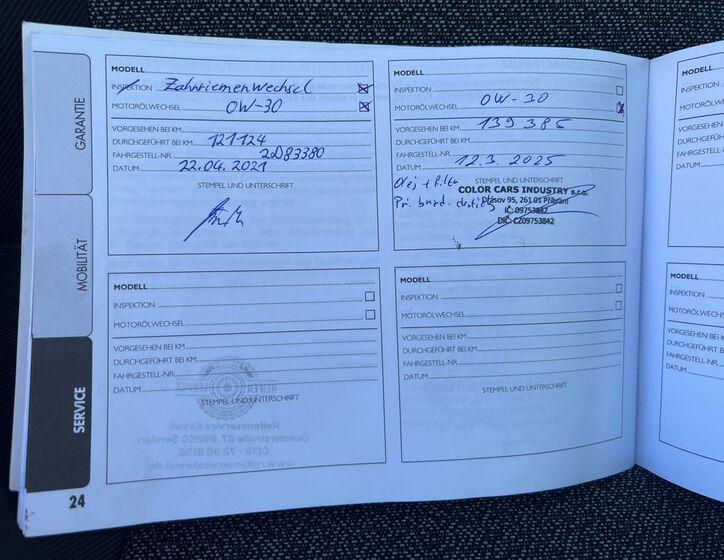 GARANTIE
MOBILITÄT
SERVICE
MODELL
INSPEKTION Zahnriemenwechsel
MOTORÖLWECHSEL 0W-30
VORGESEHEN BEI KM
DURCHGEFÜHRT BEI KM 121124
FAHRGESTELL-NR. 2D83380
DATUM 22.04.2021
STEMPEL UND UNTERSCHRIFT
MODELL
INSPEKTION
MOTORÖLWECHSEL 0W-30
VORGESEHEN BEI KM
DURCHGEFÜHRT BEI KM 139385
FAHRGESTELL-NR.
DATUM 12.3. 2025
STEMPEL UND UNTERSCHRIFT
Olej + filtr
COLOR CARS INDUSTRY s.r.o.
Drásov 95, 261 01 Příbram
IČ: 09753842
DIČ: CZ09753842
MODELL
INSPEKTION
MOTORÖLWECHSEL
VORGESEHEN BEI KM
DURCHGEFÜHRT BEI KM
FAHRGESTELL-NR.
DATUM
STEMPEL UND UNTERSCHRIFT
REIFEN
SERVICE
Reifenservice Kirindi
Daimlerstraße 27, 89250 Senden
0178 - 72 36 9152
www.reifenservicekirindi.de
MODELL
INSPEKTION
MOTORÖLWECHSEL
VORGESEHEN BEI KM
DURCHGEFÜHRT BEI KM
FAHRGESTELL-NR.
DATUM
STEMPEL UND UNTERSCHRIFT
MODELL
INSPEKTION
MOTORÖLWECHS
VORGESEHEN
DURCHGEFÜH
FAHRGESTELL
DATUM
MODELL
INSPEKTION
MOTORÖLWECHS
VORGESEHEN
DURCHGEFÜH
FAHRGESTELL
DATUM
24